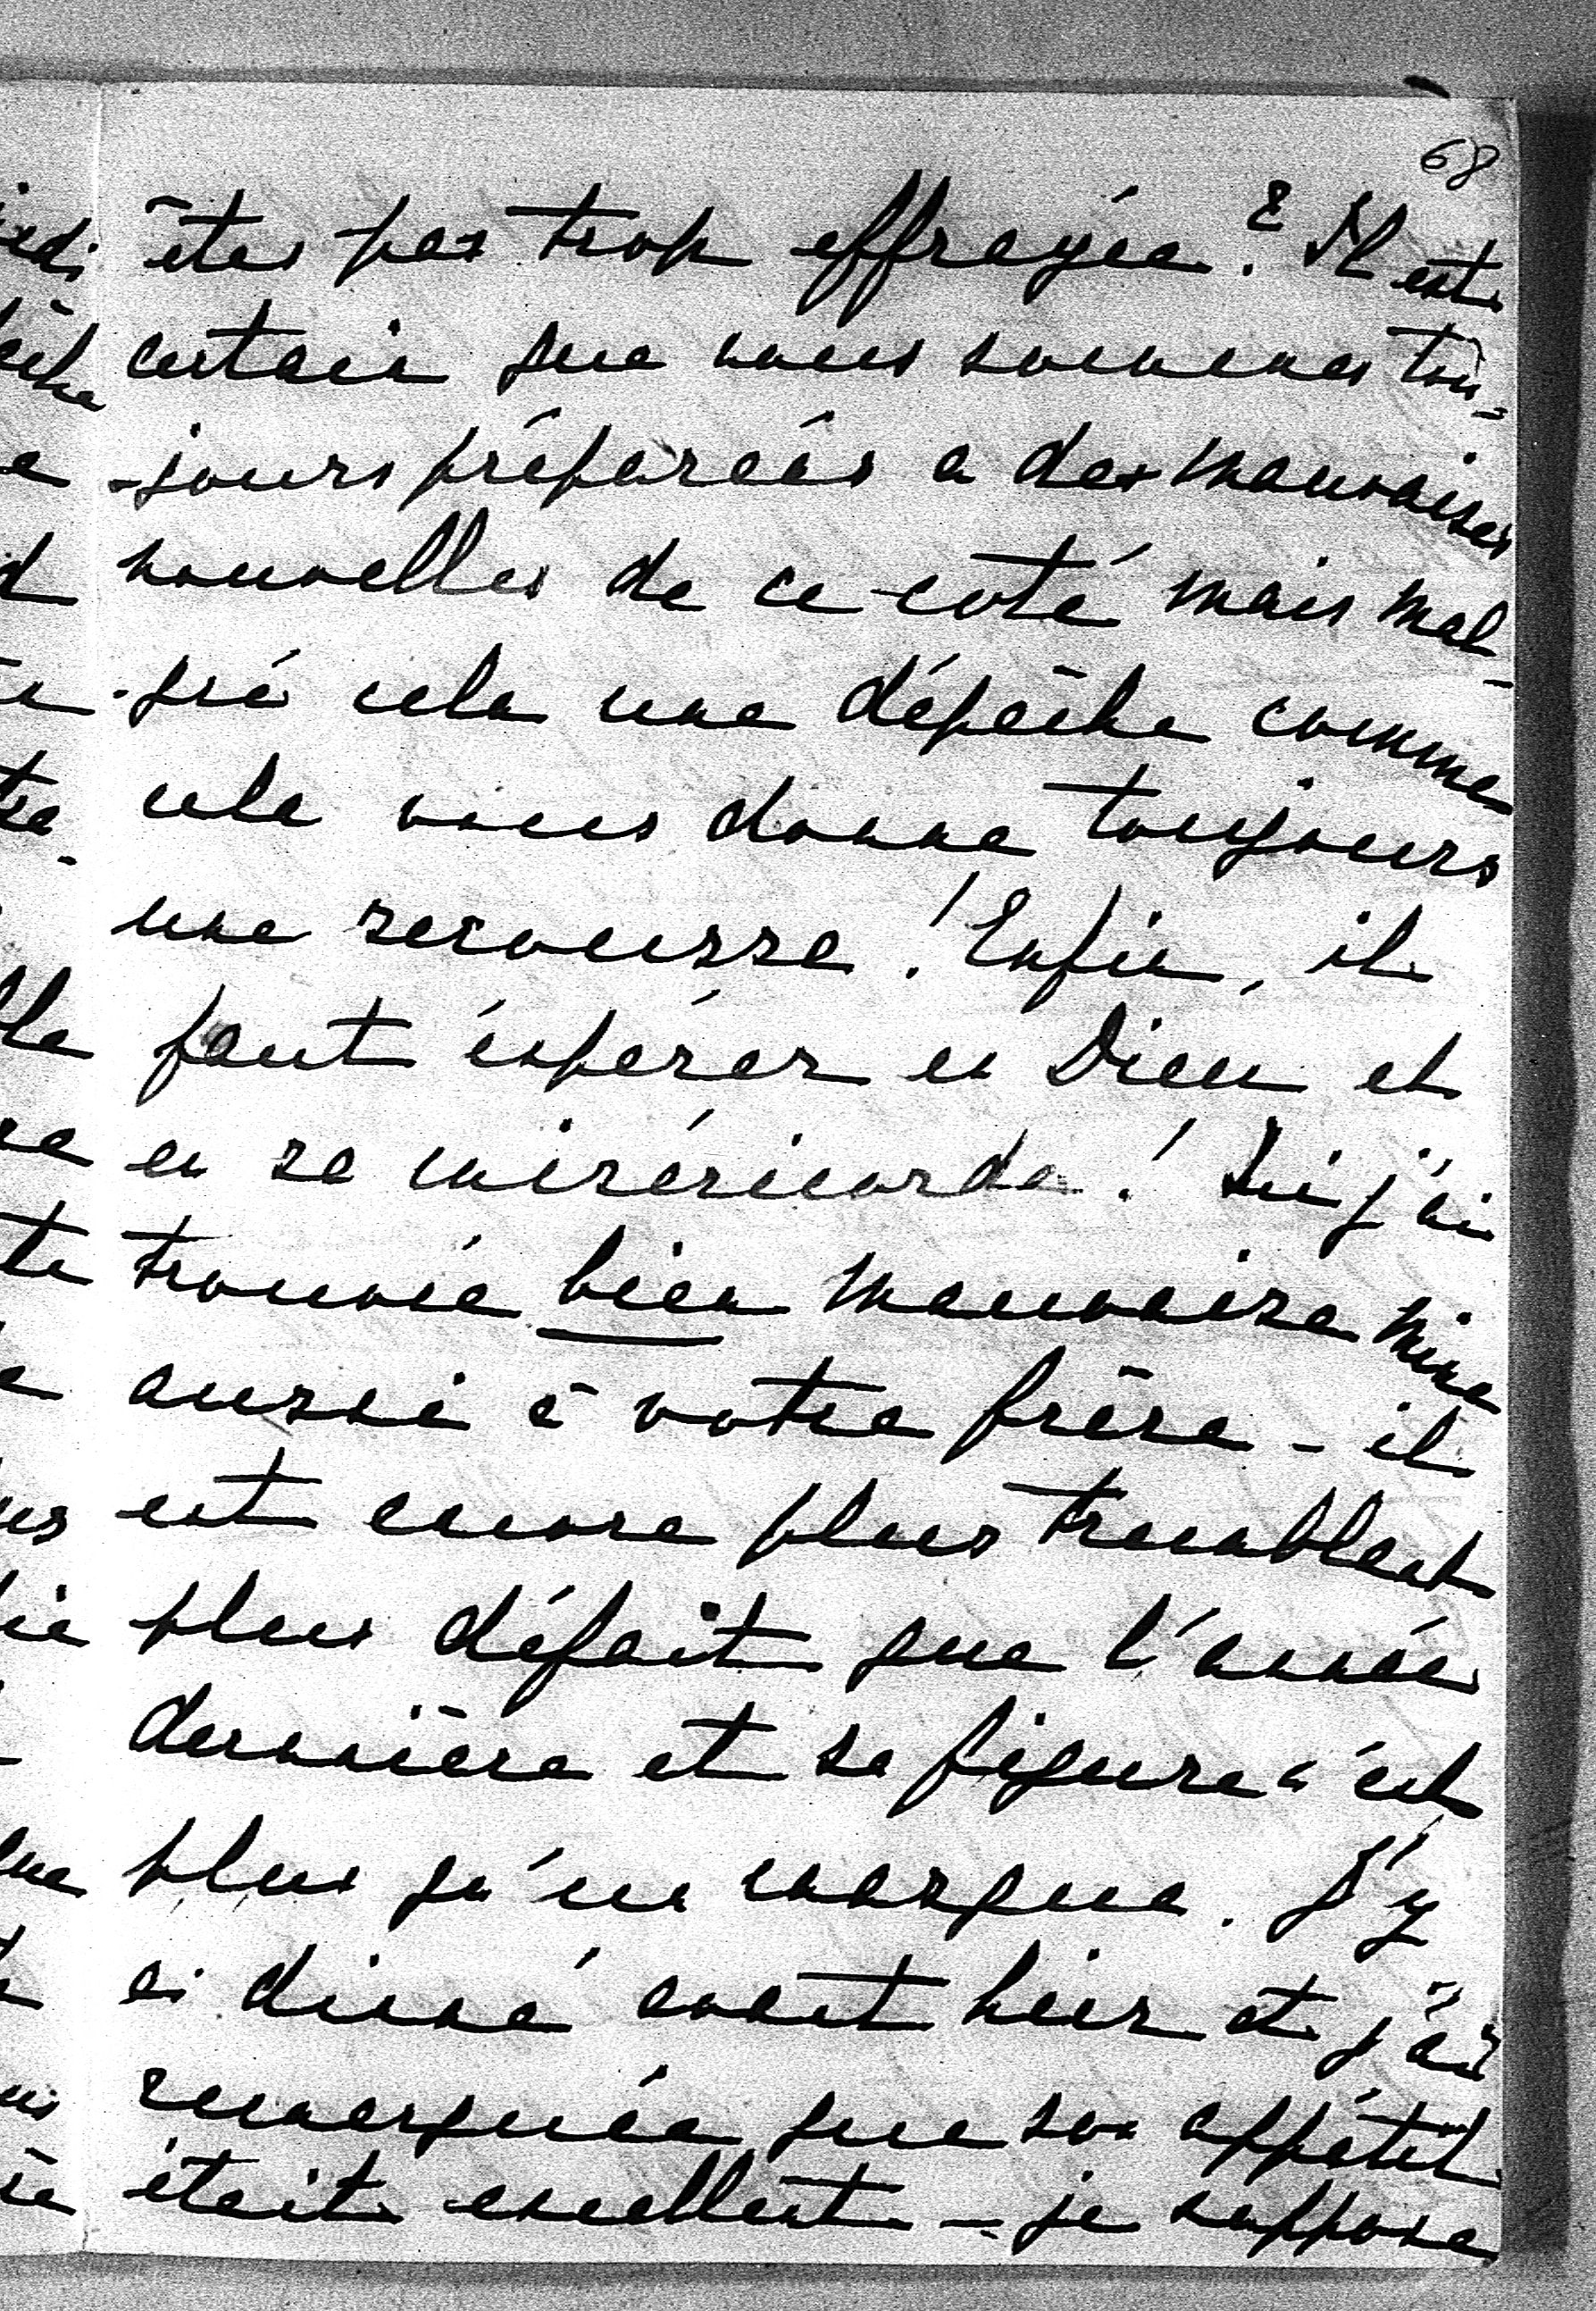 68
êtes pas trop effrayée? Il est
certain que nous sommes tou=
-jours préparées a des mauvaises
nouvelles de ce coté mais mal-
-gré cela une dépêche comme
cela vous donne toujours
une secousse! Enfin, il
faut éspérer en Dieu et
en sa miséricorde! Lui j'ai
trouvée bien mauvaise mine
aussi à votre frère - il
est encore plus tremblant
plus défait que l'année
dernière et sa figure n'est
plus qu'un masque. J'y
ai dinné avant hier et j'ai
remarquée que son appétit
était excellent - je suppose